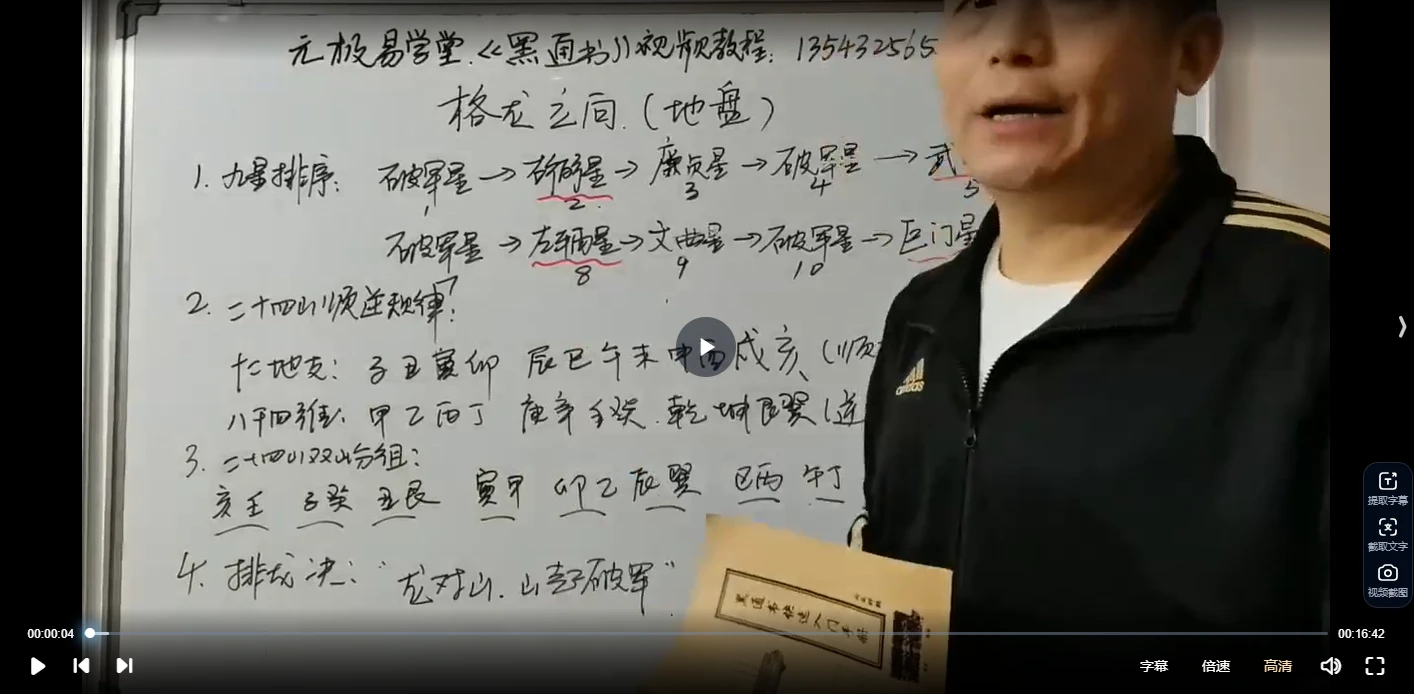 元极易学堂.《黑通书》视频教程: 135432565
格龙立向.(地盘)
1. 九星排序: 破军星→ →廉贞星→破军星→武
1 2 3 4 5
破军星→左辅星→文曲星→破军星→巨门星
8 9 10
2. 二十四山顺逆规律:
十二地支: 子丑寅卯 辰巳午未申酉戌亥(顺
八干四维: 甲乙丙丁 庚辛壬癸.乾坤艮巽(逆
3. 二十四山双山分组:
亥壬 子癸 丑艮 寅甲 卯乙 辰巽 巳丙 午丁
4. 排龙决: "龙对山.山起破军"
adidas
黑通书快速入门手册
提取字幕
截取文字
视频截图
00:00:04 00:16:42
字幕 倍速 高清